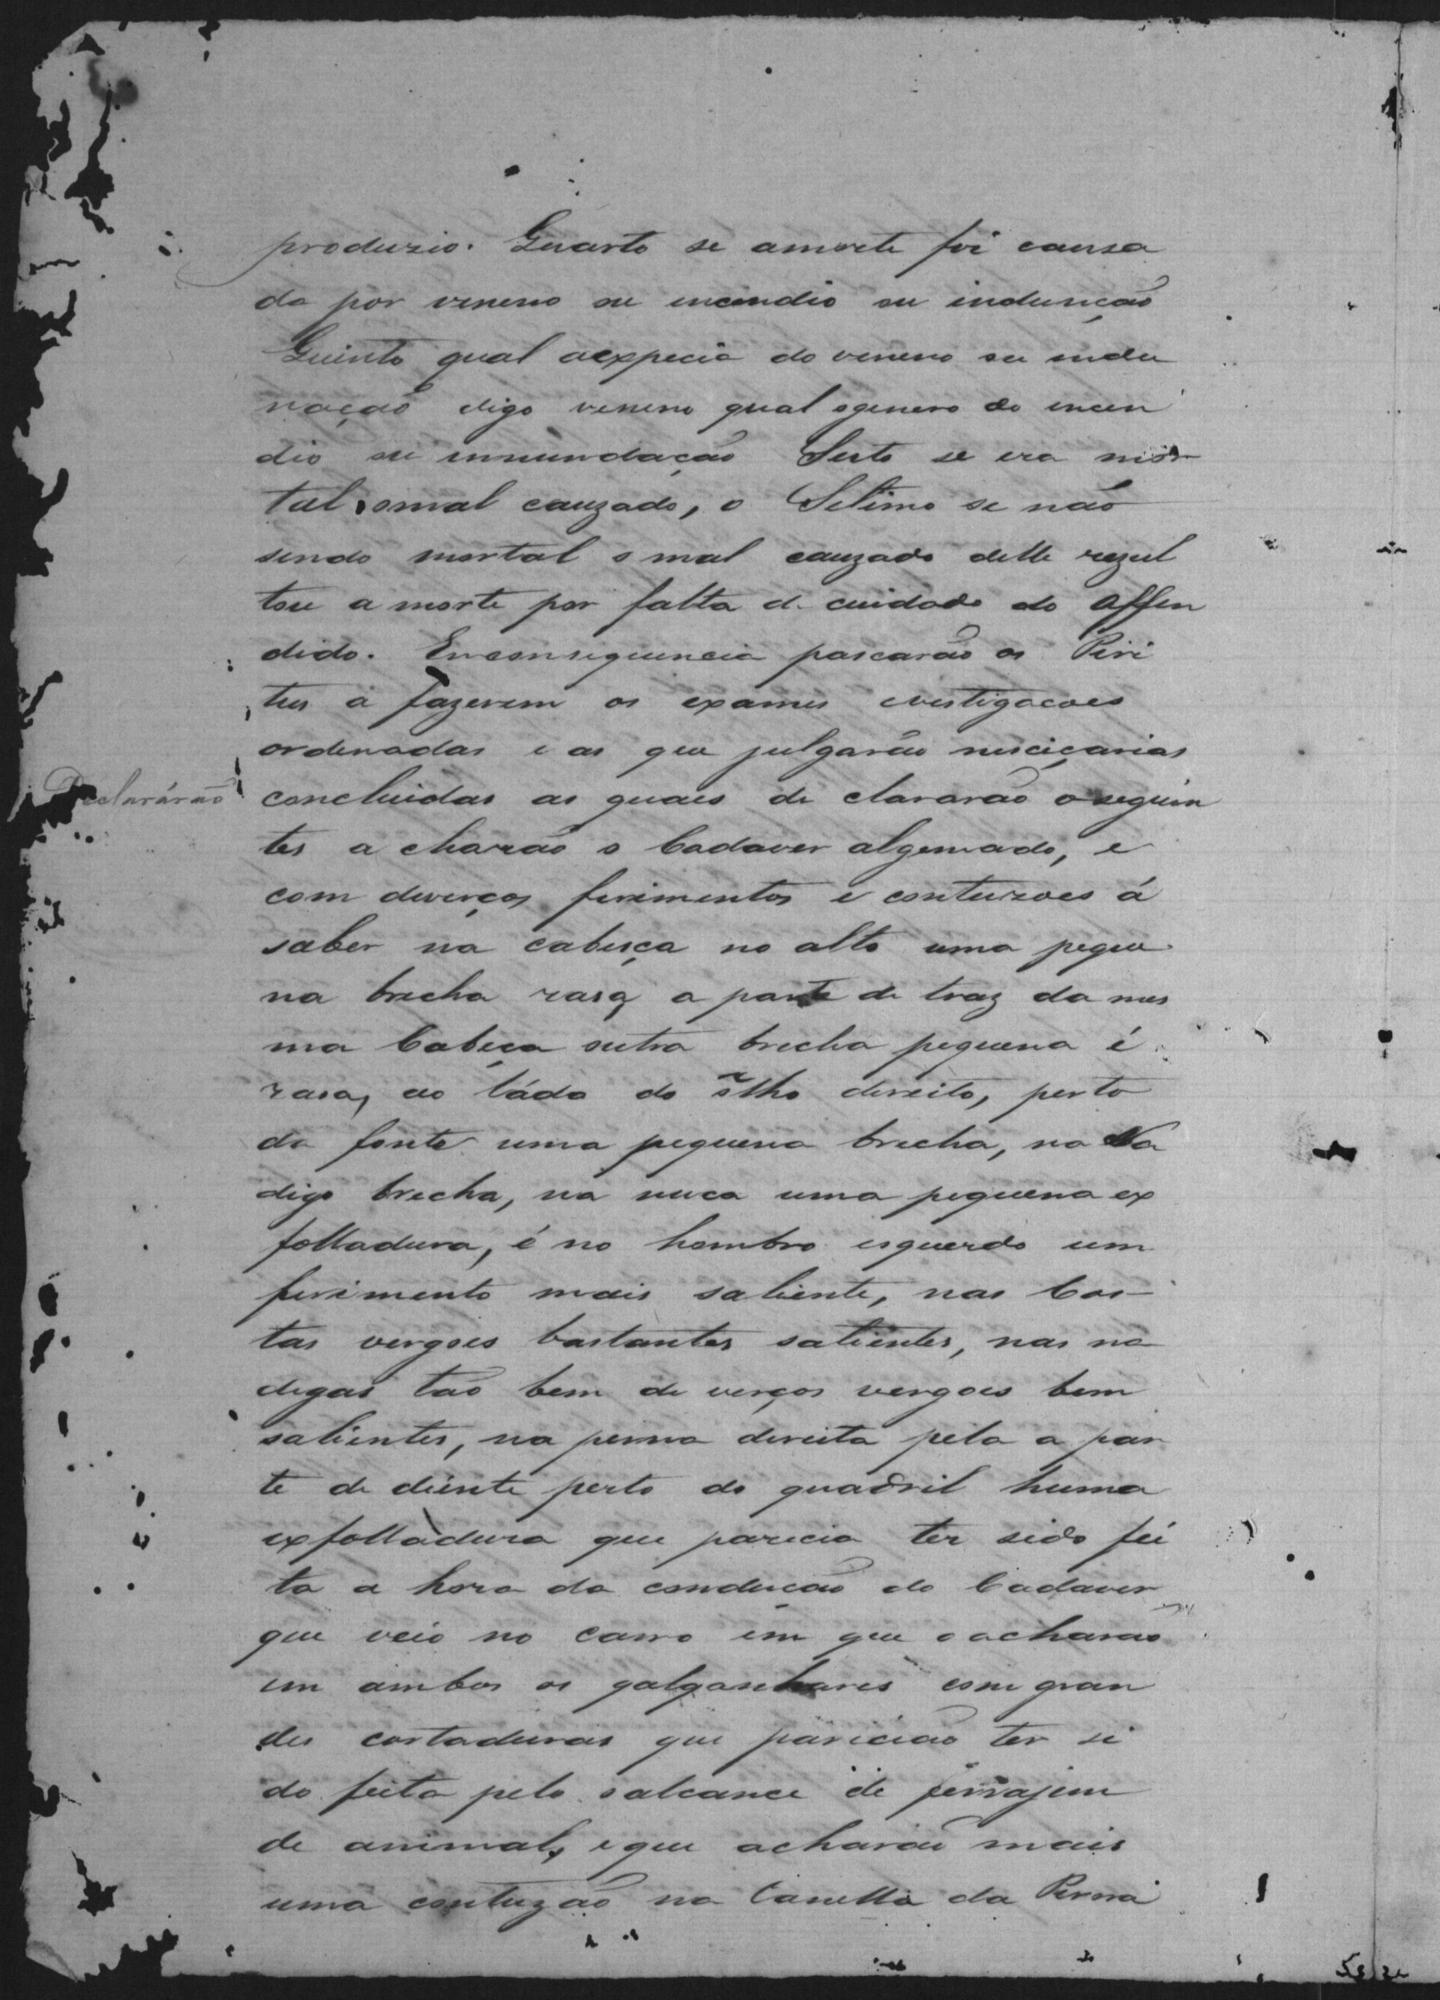 produzio. Quarto se amorte foi causa
da por veneno ou incendio ou indunção
Quinto qual aexpecia do veneno ou indu
nação digo veneno qual ogenero do incen
dio ou innundação Sesto se era mor
tal, omal cauzado, o Setimo se não
sendo mortal o mal cauzado delle rezul
tou a morte por falta de cuidado do Offen
dido. Enconsiquencia pascarão os Piri
tos a fazerem os exames evestigacoes
ordenadas e as que julgarão nesciçarias
Declarárão
concluidas as quaes de clararão o seguin
tes a charão o Cadaver algemado, e
com diverços ferimentos e contuzoes á
saber na cabeça no alto uma peque
na brecha rasa, a parte de traz da mes
ma Cabeça outra brecha pequena é
rasa, ao ládo do olho direito, perto
da fonte uma pequena brecha, na Na
digo brecha, na nuca uma pequena ex
folladura, é no hombro esquerdo um
ferimento mais saliente, nas Cos-
tas vergoes bastantes salientes, nas na
degas tao bem de verços vergoes bem
salientes, na perna direita pela a par
te de diente perto do quadril huma
exfolladura que parecia ter sido fei
ta a hora da condução do Cadaver
que veio no carro em que o acharao
em ambos os galganhares com gran
des cortaduras que pariciao ter si
do feita pelo oalcance de ferrajem
de animal, e que acharão mais
uma contuzão na Canella da Perna